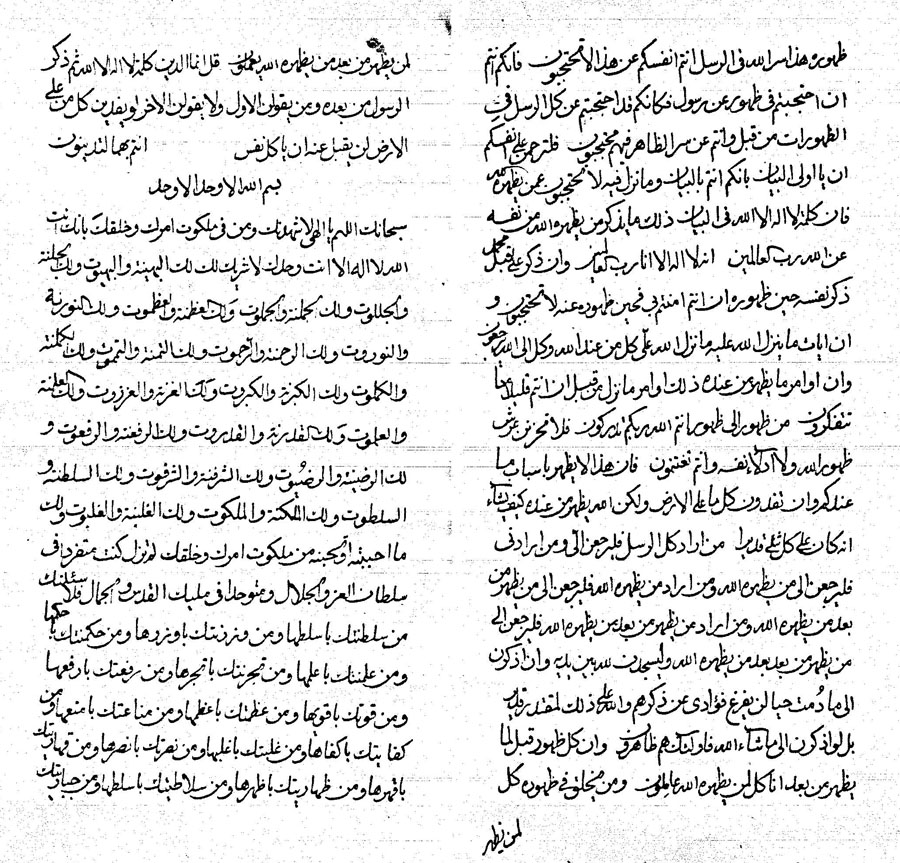 ظهوره هذا سر الله فى الرسل انتم انفسكم عن هذا لا تحتجبون فانكم انتم
ان احتجبتم فى ظهور عن رسول فكانكم قد احتجبتم عن كل الرسل فى
الظهورات من قبل وانتم عن سر الظاهر فيهم محتجبون فلترحمن على انفسكم
ان يا اولى البيان بانكم انتم بالبيان وما نزل فيه لا تحتجبون عمن يظهره الله
فان كلمة لا اله الا الله فى البيان ذلك ما يذكر من يظهره الله من نفسه
عن الله رب العالمين انه لا اله الا انا رب العالمين وان ذكر على قبل محمد
ذكر نفسه حين ظهوره وان انتم امنتم بى فحين ظهوره عنه لا تحتجبون و
ان ايات ما ينزل الله عليه ما نزل الله على كل من عند الله وكل الى الله يرجعون
وان اوامر ما يظهر من عنده ذلك اوامر ما نزل من قبل ان انتم قليلا ما
تتفكرون من ظهور الى ظهور انتم الله ربكم تدركون فلا تحرمن عن عرش
ظهور الله ولا ادلاء نفسه وانتم تغتنمون فان هذا لا يظهر باسباب ما
عندكم وان تفدون كل ما على الارض ولكن الله يظهر من عنده كيف يشاء
انه كان على كل شئ قديرا من اراد كل الرسل فليرجعن الى ومن ارادنى
فليرجعن الى من يظهره الله ومن اراد من يظهره الله فليرجعن الى من يظهر من
بعد من يظهره الله ومن اراد من يظهر من بعد من يظهره الله فليرجعن الى
من يظهر من بعد بعد من يظهره الله وليسجدن لله بين يديه وان اذكرن
الى ما دمت حيا لن يفرغ فؤادى عن ذكرهم والله على ذلك لمقتدر قدير
بل لو اذكرن الى ما شاء الله فاولئك هم ظاهرون وان كل ظهور قبل لما
يظهر من بعد انا كل لمن يظهره الله عاملون ومن يخلق فى ظهوره كل
لمن يظهر
لمن يظهر من بعد من يظهره الله يعملون قل انما الدين كلمة لا اله الا الله ثم ذكر
الرسول من بعده ومن يقولن الاول ولا يقولن الاخر لو يفدين كل من على
الارض لن يقبل عنه ان يا كل نفس انتم بهما لتدينون
بسم الله الاوحد الاوحد
سبحانك اللهم يا الهى لاشهدنك ومن فى ملكوت امرك وخلقك بانك انت
الله لا اله الا انت وحدك لا شريك لك لك البهيئة والبهيوت ولك الجللة
والجللوت ولك الجملة والجملوت ولك العظمة والعظموت ولك النورة
والنوروت ولك الرحمة والرحموت ولك التممة والتمموت ولك الكملة
والكملوت ولك الكبرة والكبروت ولك العززة والعززوت ولك العلمة
والعلموت ولك القدرة والقدروت ولك الرفعة والرفعوت و
لك الرضية والرضيوت ولك الشرفة والشرفوت ولك السلطنة و
السلطوت ولك الملكة والملكوت ولك الغلبة والغلبوت ولك
ما احببته او تحبنه من ملكوت امرك وخلقك لم تزل كنت متفردا فى
سلطان العز والجلال ومتوحدا فى مليك القدس والجمال فلاسئلنك
من سلطنتك باسلطها ومن ونرتك باونرها ومن حكمتك باحكمها
ومن علمتك باعلمها ومن تجرتك باتجرها ومن رفعتك بارفعها
ومن قوتك باقويها ومن عظمتك باعظمها ومن مناعتك بامنعها ومن
كفايتك باكفاها ومن غلبتك باغلبها ومن نصرتك بانصرها ومن قهاريتك
باقهرها ومن ظهاريتك باظهرها ومن سلاطيتك باسلطها ومن جباريتك